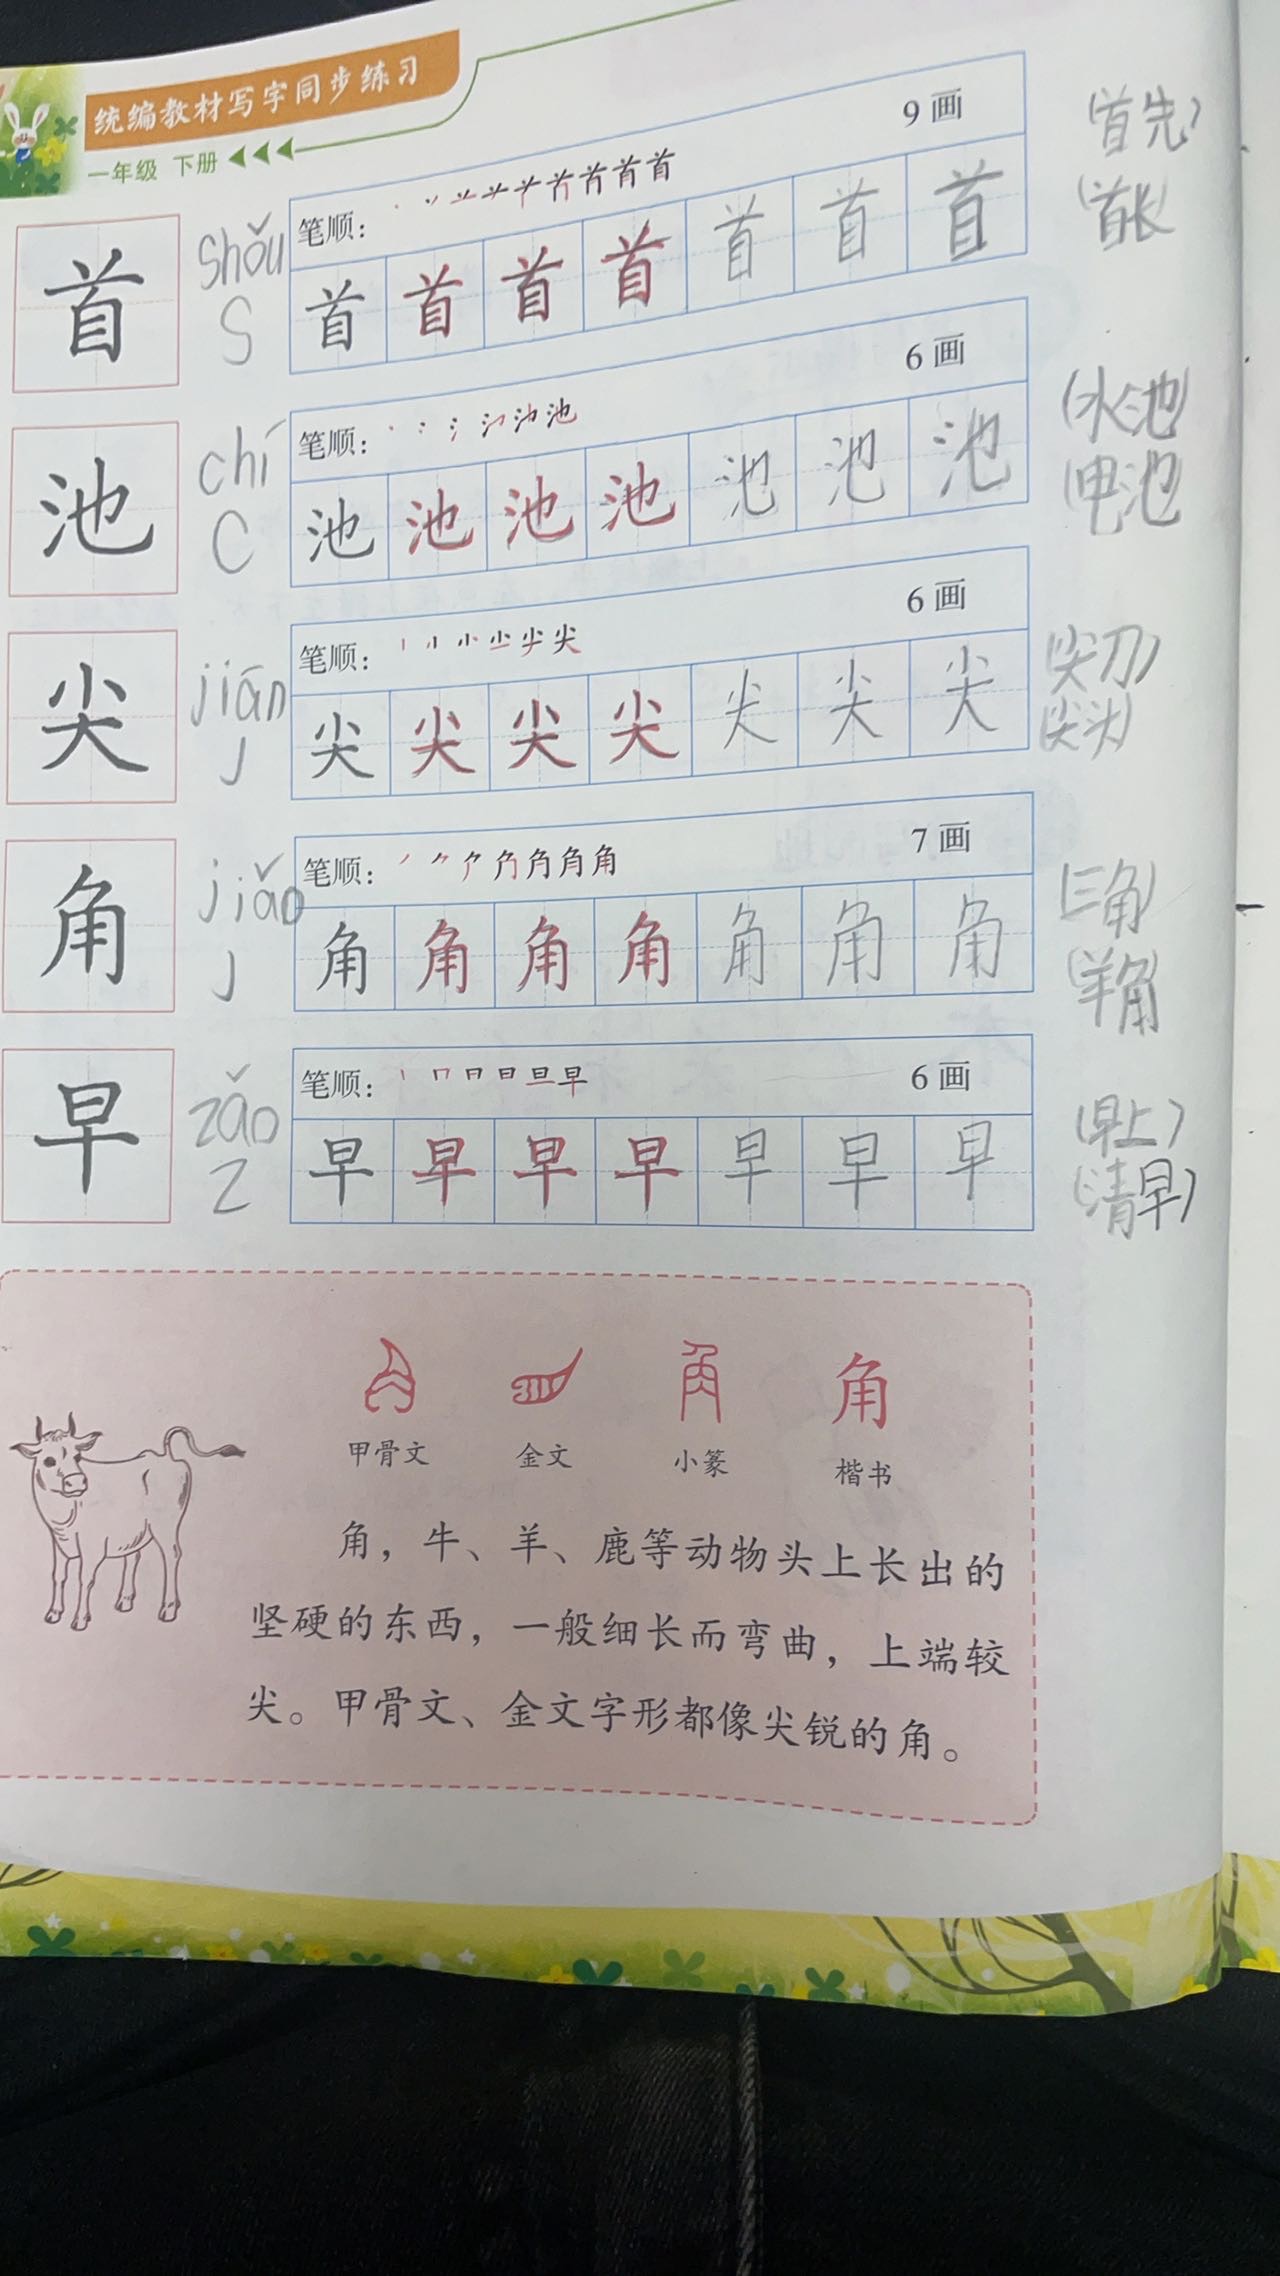 统编教材写字同步练习
一年级 下册
首 shǒu S
笔顺： 9画
首 首 首 首 首 首 首
（首先）
（首长）
池 chí C
笔顺： 6画
池 池 池 池 池 池 池
（水池）
（电池）
尖 jiān J
笔顺： 6画
尖 尖 尖 尖 尖 尖 尖
（尖刀）
（尖头）
角 jiǎo J
笔顺： 7画
角 角 角 角 角 角 角
（三角）
（羊角）
早 zǎo Z
笔顺： 6画
早 早 早 早 早 早 早
（早上）
（清早）
角
甲骨文 金文 小篆 楷书
角，牛、羊、鹿等动物头上长出的
坚硬的东西，一般细长而弯曲，上端较
尖。甲骨文、金文字形都像尖锐的角。